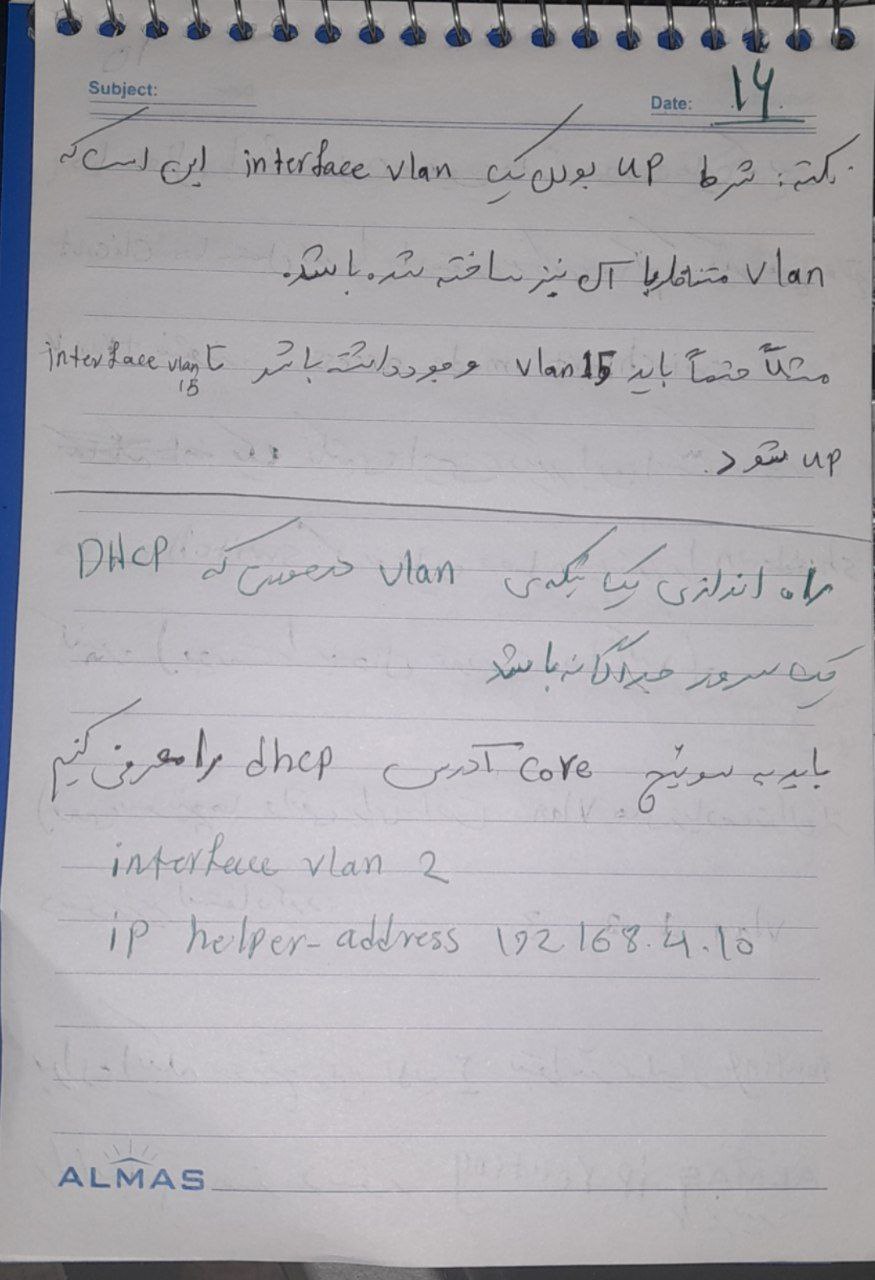 Subject:
Date: 14
نکته: شرط up بودن یک interface vlan این است که
vlan متناظر با آن نیز ساخته شده باشد.
مثلاً حتماً باید vlan 15 وجود داشته باشد تا interface vlan 15
up شود.
راه اندازی یک شبکه‌ی vlan درصورتی که DHCP
یک سرور جداگانه باشد
باید به سوئیچ core آدرس dhcp را معرفی کنیم
interface vlan 2
ip helper-address 192 168.4.10
ALMAS